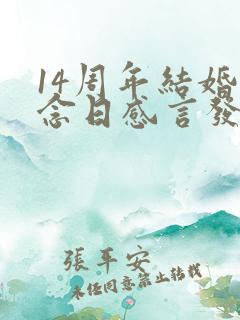 14周年結婚
念日感言發
張平安
未任同意禁止轉載